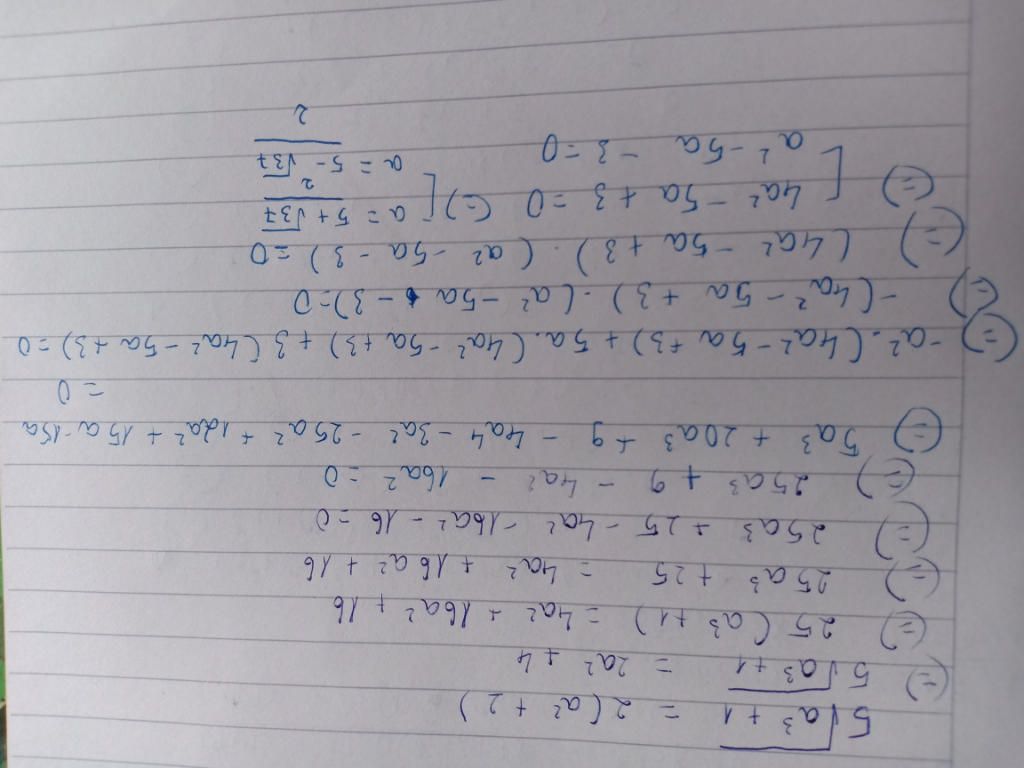 5√(a³ + 1) = 2(a² + 2)
(=) 5√(a³ + 1) = 2a² + 4
(=) 25(a³ + 1) = 4a² + 16a² + 16
(=) 25a³ + 25 = 4a² + 16a² + 16
(=) 25a³ + 25 - 4a² - 16a² - 16 = 0
(=) 25a³ + 9 - 4a² - 16a² = 0
(=) 5a³ + 20a³ + 9 - 4a4 - 3a² - 25a² + 12a² + 15a - 15a
= 0
(=) -a².(4a² - 5a + 3) + 5a.(4a² - 5a + 3) + 3(4a² - 5a + 3) = 0
(=) -(4a² - 5a + 3).(a² - 5a - 3) = 0
(=) (4a² - 5a + 3).(a² - 5a - 3) = 0
(=) [ 4a² - 5a + 3 = 0 (=) [ a = (5 + √37)/2
a² - 5a - 3 = 0 a = (5 - √37)/2